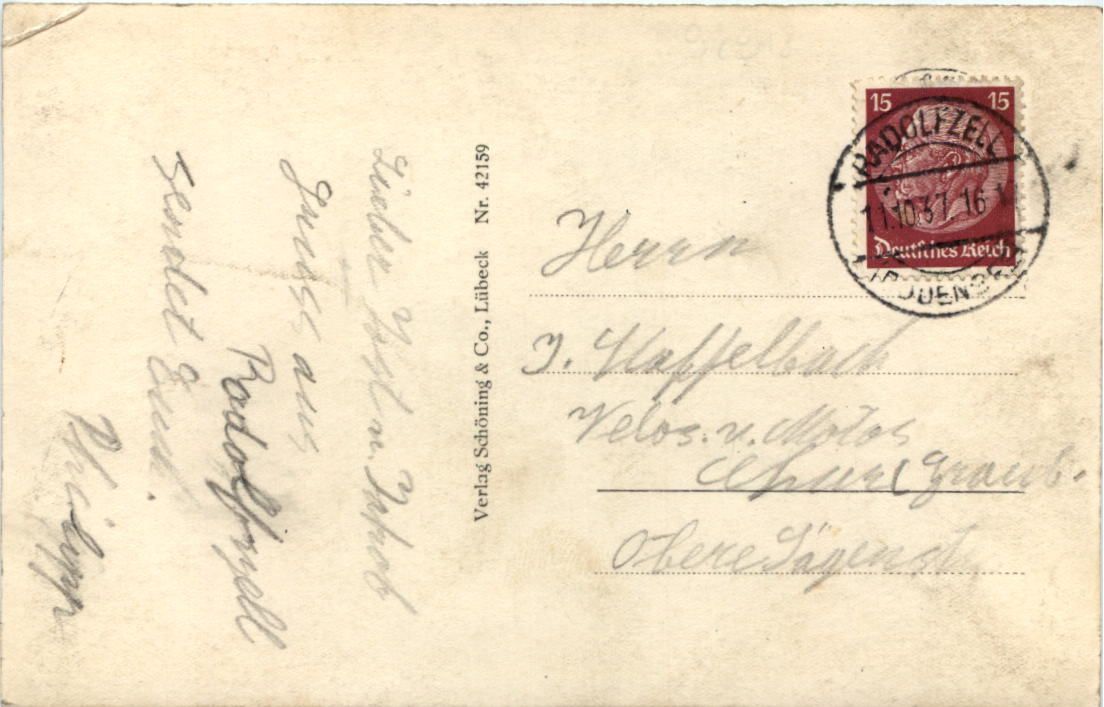 Lieber Jost u. Jakob
Gruss aus
Radolfzell
sendet Euch.
Philipp
Verlag Schöning & Co., Lübeck Nr. 42159
15 15
Deutsches Reich
RADOLFZELL
11.10.37. 16-1
Herrn
J. Kaffelbach
Velos. u. Motos
Chur (Graub.
Obere